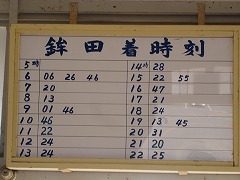 鉾田着時刻
5時
6 06 26 46
7 20
8 13
9 01 46
10 46
11 22
12 24
13 24
14時 28
15 22 55
16 47
17 21
18 24
19 13 45
20 31
21 20
22 25